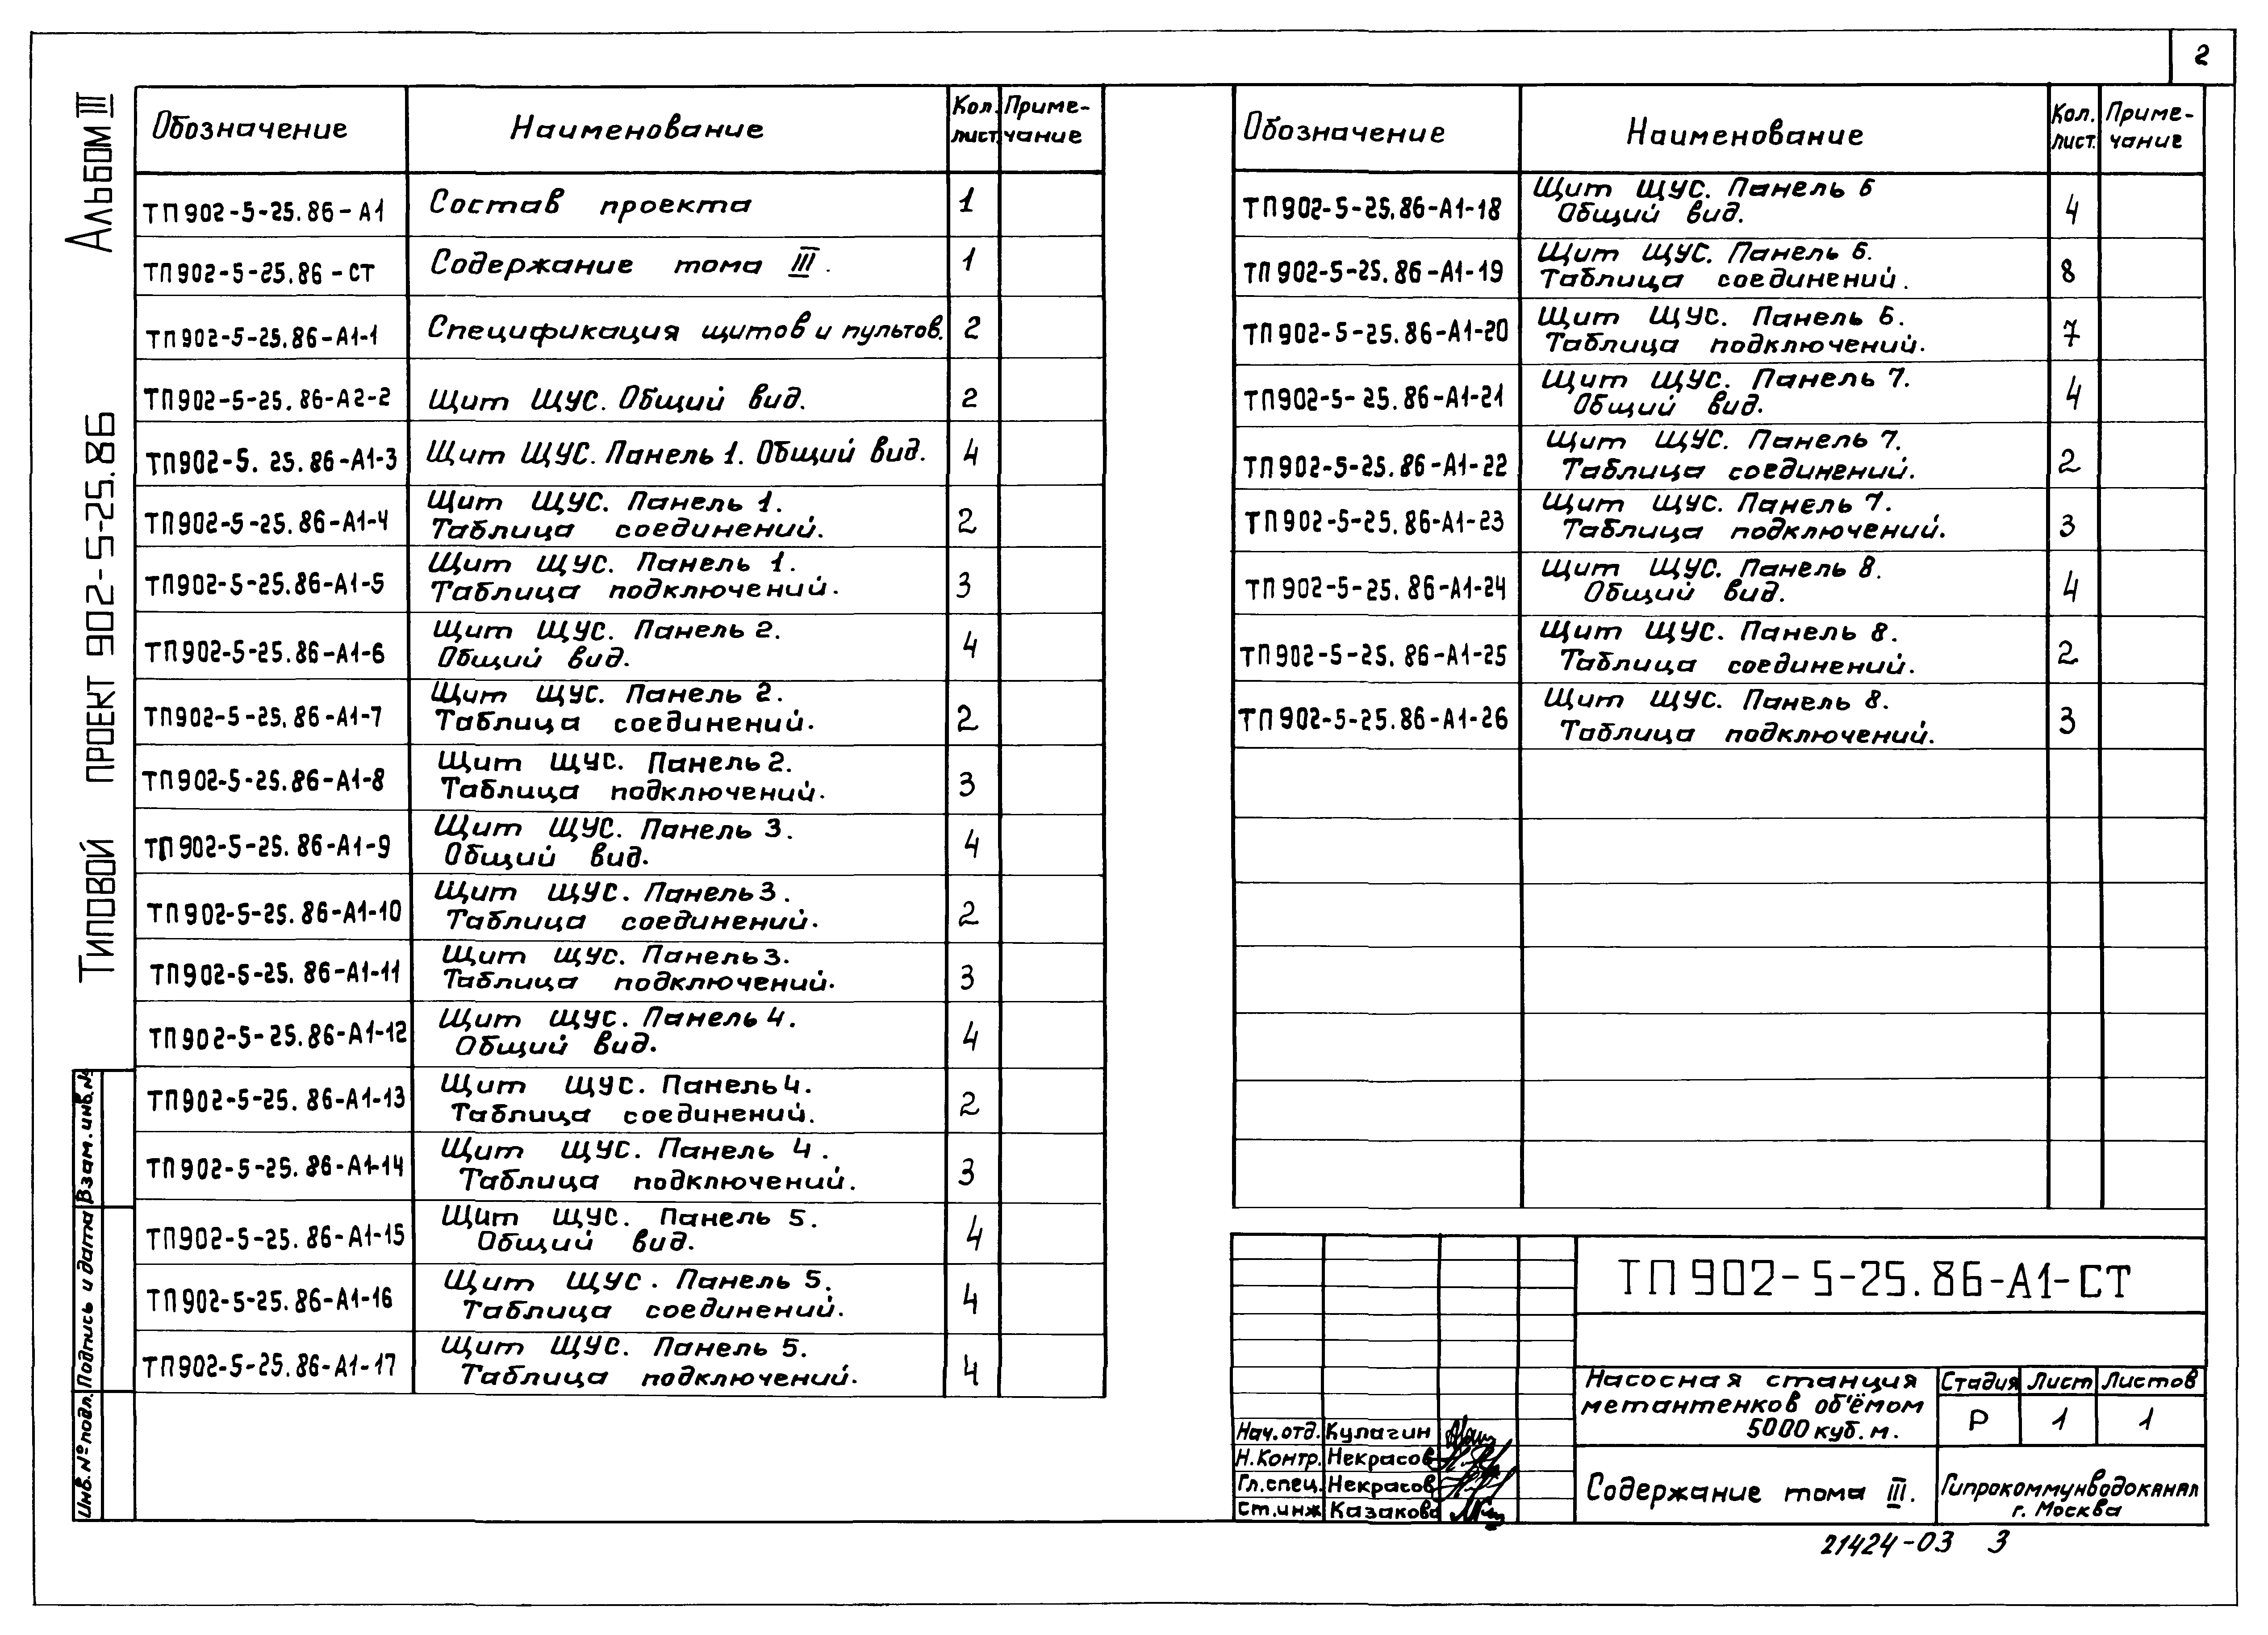 2
Альбом III
Типовой проект 902-5-25.86
Обозначение Наименование Кол. лист. Приме-чание
ТП902-5-25.86-А1 Состав проекта 1
ТП902-5-25.86-СТ Содержание тома III. 1
ТП902-5-25.86-А1-1 Спецификация щитов и пультов. 2
ТП902-5-25.86-А2-2 Щит ЩУС. Общий вид. 2
ТП902-5. 25.86-А1-3 Щит ЩУС. Панель 1. Общий вид. 4
ТП902-5-25.86-А1-4 Щит ЩУС. Панель 1.
Таблица соединений. 2
ТП902-5-25.86-А1-5 Щит ЩУС. Панель 1.
Таблица подключений. 3
ТП902-5-25.86-А1-6 Щит ЩУС. Панель 2.
Общий вид. 4
ТП902-5-25.86-А1-7 Щит ЩУС. Панель 2.
Таблица соединений. 2
ТП902-5-25.86-А1-8 Щит ЩУС. Панель 2.
Таблица подключений. 3
ТП902-5-25.86-А1-9 Щит ЩУС. Панель 3.
Общий вид. 4
ТП902-5-25.86-А1-10 Щит ЩУС. Панель 3.
Таблица соединений. 2
ТП902-5-25.86-А1-11 Щит ЩУС. Панель 3.
Таблица подключений. 3
ТП902-5-25.86-А1-12 Щит ЩУС. Панель 4.
Общий вид. 4
ТП902-5-25.86-А1-13 Щит ЩУС. Панель 4.
Таблица соединений. 2
ТП902-5-25.86-А1-14 Щит ЩУС. Панель 4.
Таблица подключений. 3
ТП902-5-25.86-А1-15 Щит ЩУС. Панель 5.
Общий вид. 4
ТП902-5-25.86-А1-16 Щит ЩУС. Панель 5.
Таблица соединений. 4
ТП902-5-25.86-А1-17 Щит ЩУС. Панель 5.
Таблица подключений. 4
Обозначение Наименование Кол. лист. Приме-чание
ТП902-5-25.86-А1-18 Щит ЩУС. Панель 6
Общий вид. 4
ТП902-5-25.86-А1-19 Щит ЩУС. Панель 6.
Таблица соединений. 8
ТП902-5-25.86-А1-20 Щит ЩУС. Панель 6.
Таблица подключений. 7
ТП902-5-25.86-А1-21 Щит ЩУС. Панель 7.
Общий вид. 4
ТП902-5-25.86-А1-22 Щит ЩУС. Панель 7.
Таблица соединений. 2
ТП902-5-25.86-А1-23 Щит ЩУС. Панель 7.
Таблица подключений. 3
ТП902-5-25.86-А1-24 Щит ЩУС. Панель 8.
Общий вид. 4
ТП902-5-25.86-А1-25 Щит ЩУС. Панель 8.
Таблица соединений. 2
ТП902-5-25.86-А1-26 Щит ЩУС. Панель 8.
Таблица подключений. 3
Взам. инв. №
Подпись и дата
Инв. № подл.
ТП902-5-25.86-А1-СТ
Насосная станция
метантенков об'ёмом
5000 куб. м.
Стадия Лист Листов
Р 1 1
Нач. отд. Кулагин
Н. Контр. Некрасов
Гл. спец. Некрасов
Ст. инж Казакова
Содержание тома III.
Гипрокоммунводоканал
г. Москва
21424-03 3